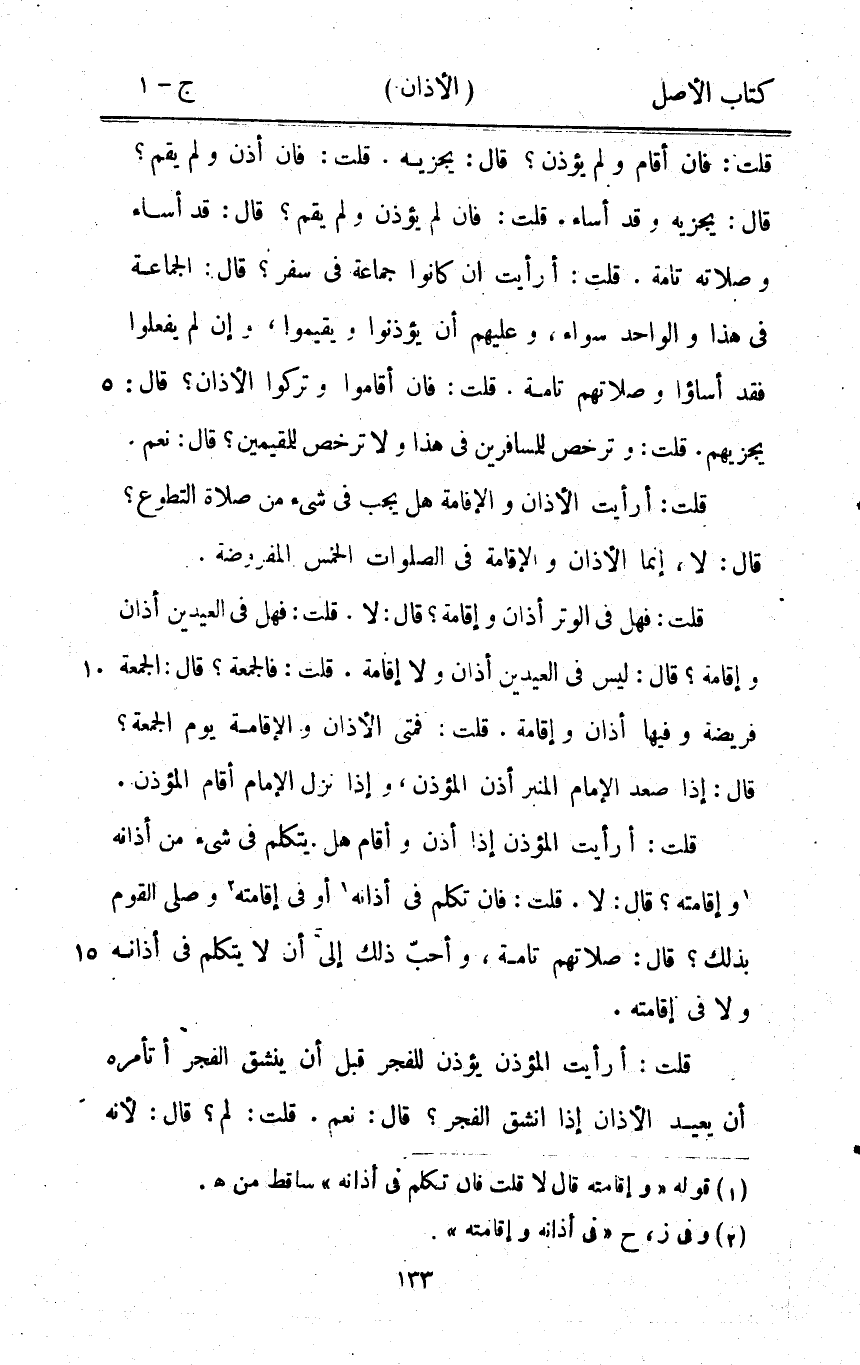 كتاب الأصل (الأذان) ج - ١
قلت: فان أقام و لم يؤذن؟ قال: يجزيـه . قلت: فان أذن و لم يقم؟
قال: يجزيه و قد أساء. قلت: فان لم يؤذن و لم يقم؟ قال: قد أسـاء
و صلاته تامة . قلت: أ رأيت ان كانوا جماعة فى سفر؟ قال: الجماعـة
فى هذا و الواحد سواء، و عليهم أن يؤذنوا و يقيموا، و إن لم يفعلوا
فقد أساؤا و صلاتهم تامـة . قلت: فان أقاموا و تركوا الأذان؟ قال: ٥
يجزيهم. قلت: و ترخص للسافرين فى هذا و لا ترخص للقيمين؟ قال: نعم .
قلت: أ رأيت الأذان و الإقامة هل يجب فى شىء من صلاة التطوع؟
قال: لا، إنما الأذان و الإقامة فى الصلوات الخمس المفروضة .
قلت: فهل فى الوتر أذان و إقامة؟ قال: لا . قلت: فهل فى العيدين أذان
و إقامة؟ قال: ليس فى العيدين أذان و لا إقامة . قلت: فالجمعة؟ قال: الجمعة ١٠
فريضة و فيها أذان و إقامة . قلت: فمتى الأذان و الإقامـة يوم الجمعة؟
قال: إذا صعد الإمام المنبر أذن المؤذن، و إذا نزل الإمام أقام المؤذن .
قلت: أ رأيت المؤذن إذا أذن و أقام هل يتكلم فى شىء من أذانه
١و إقامته؟ قال: لا . قلت: فان تكلم فى أذانه١ أو فى إقامته٢ و صلى القوم
بذلك؟ قال: صلاتهم تامـة، و أحبّ ذلك إلىّ أن لا يتكلم فى أذانـه ١٥
و لا فى إقامته .
قلت: أ رأيت المؤذن يؤذن للفجر قبل أن ينشق الفجر أ تأمره
أن يعيـد الأذان إذا انشق الفجر؟ قال: نعم . قلت: لم؟ قال: لأنه
(١) قوله «و إقامته قال لا قلت فان تكلم فى أذانه» ساقط من ه .
(٢) و فى ز، ح «فى أذانه و إقامته» .
١٣٣